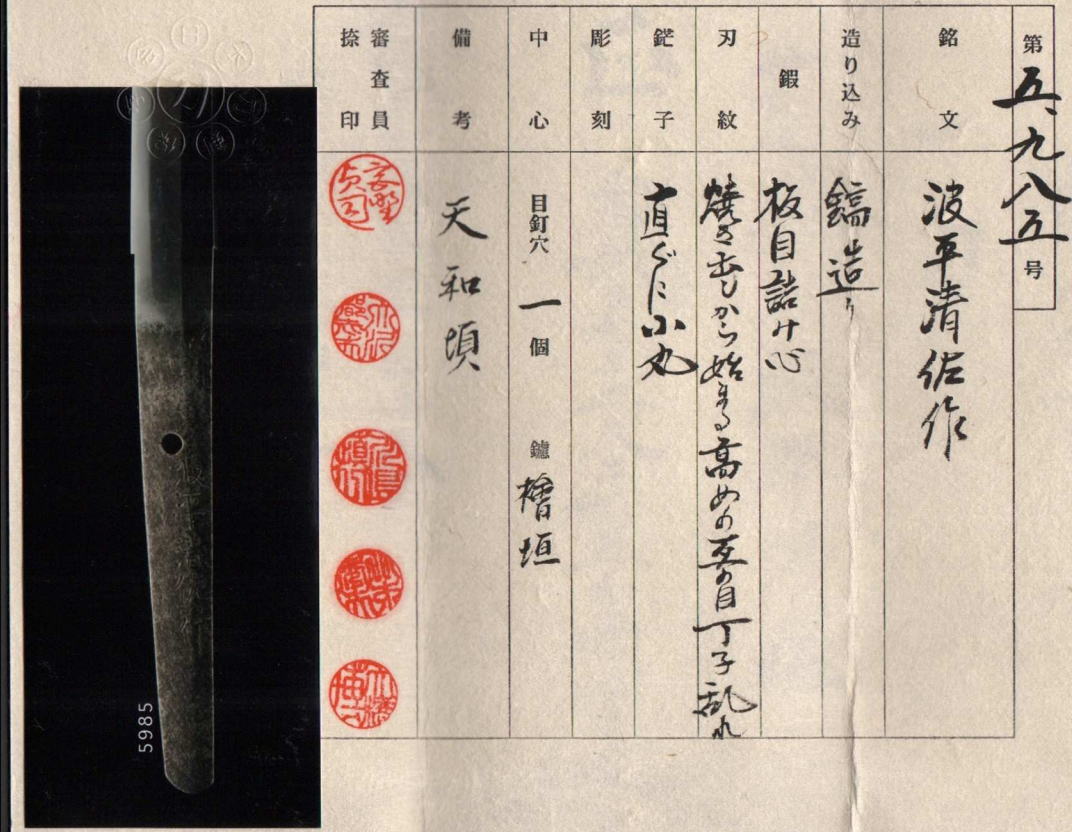 第五、九八五号
銘文
波平清佐作
造り込み
鎬造り
鍜
板目詰け心
刃紋
焼き出しから始まる高めの互の目丁子乱れ
鋩子
直ぐに小丸
彫刻
中心
目釘穴 一 個 鑢 檜垣
備考
天和頃
審査員
捺印
5985